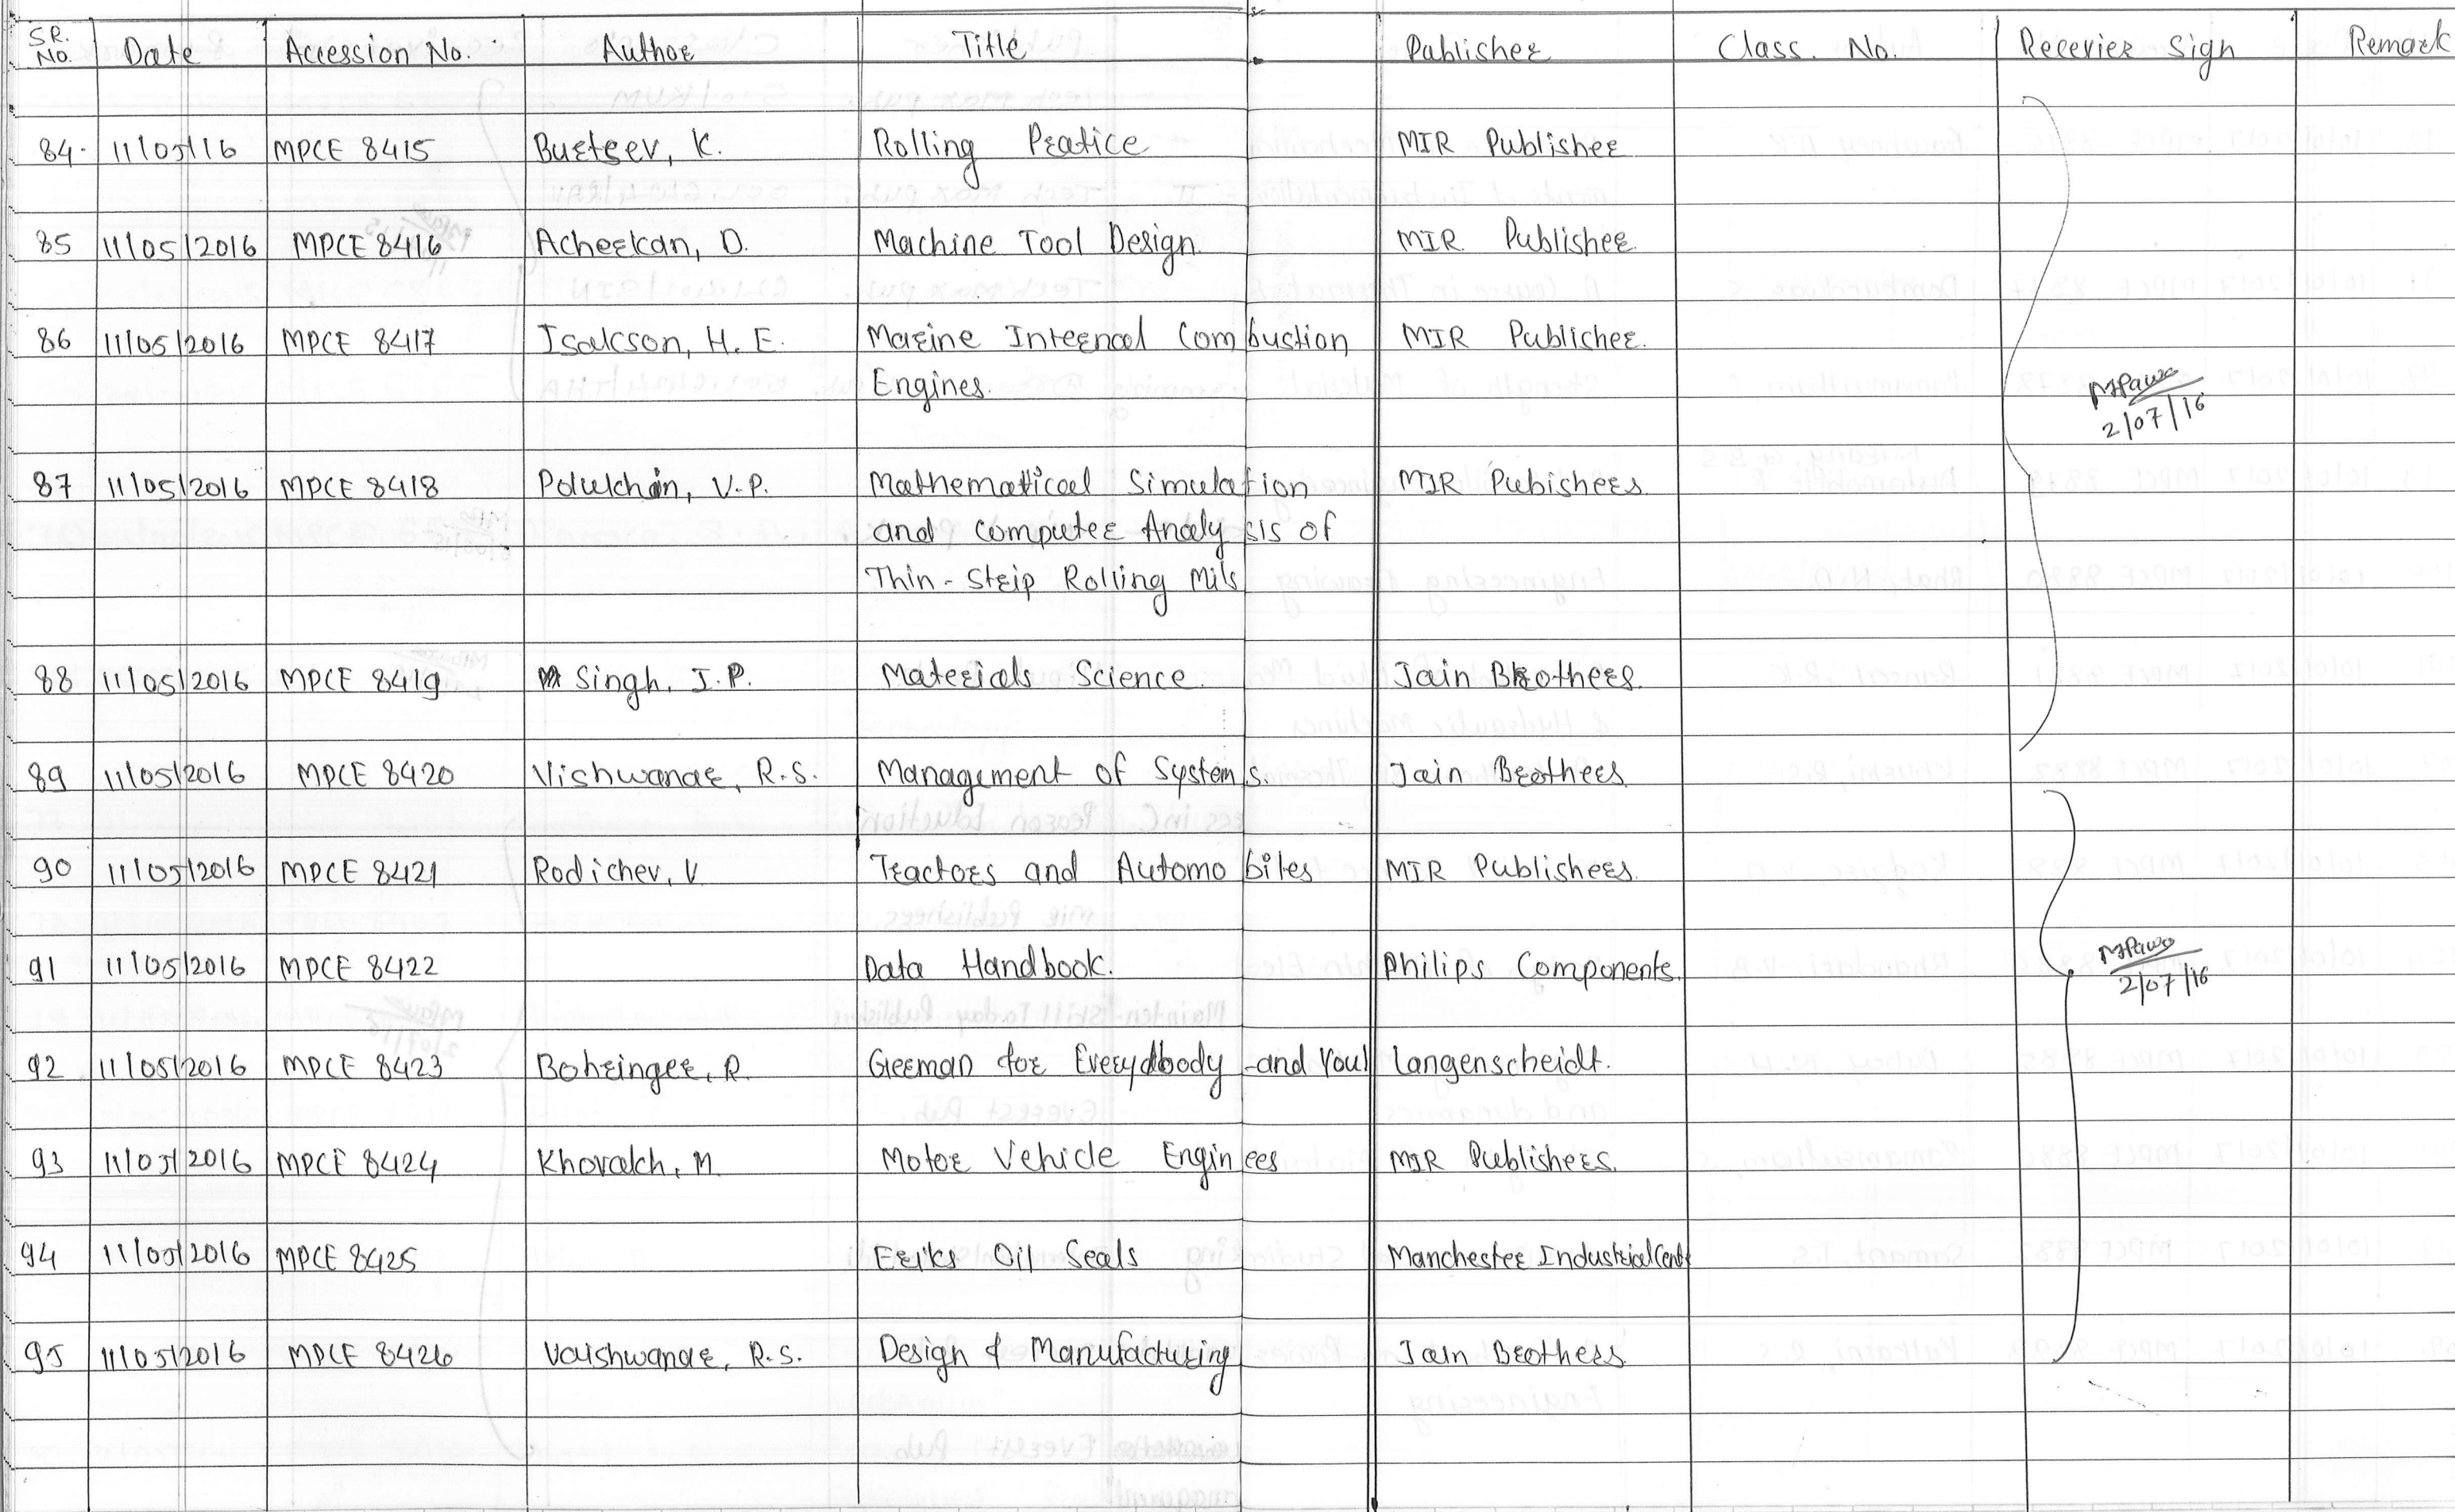 SR. NO. Date Accession No. Author Title Publisher Class. No. Recevier Sign Remark
84. 11/05/16 MPCE 8415 Burtsev, K. Rolling Pratice MIR Publisher
85 11/05/2016 MPCE 8416 Acherkan, D. Machine Tool Design. MIR Publisher
86 11/05/2016 MPCE 8417 Isakson, H. E. Marine Internal Combustion MIR Publisher.
Engines.
MPawar
2/07/16
87 11/05/2016 MPCE 8418 Polukhin, V.P. Mathematical Simulation MIR Pubishers.
and Computer Analysis of
Thin-Strip Rolling Mils
88 11/05/2016 MPCE 8419 Singh, I.P. Materials Science. Jain Brothers.
89 11/05/2016 MPCE 8420 Vishwanar, R.S. Management of Systems. Jain Brothers
90 11/05/2016 MPCE 8421 Rodichev, V. Tractors and Automobiles MIR Publishers.
91 11/05/2016 MPCE 8422 Data Handbook. Philips Components.
MPawar
2/07/16
92 11/05/2016 MPCE 8423 Bohringer, R. German for Everydbody and You! Langenscheidt.
93 11/05/2016 MPCE 8424 Khovakh, M. Motor Vehicle Engines MIR Publishers.
94 11/05/2016 MPCE 8425 Eriks Oil Seals Manchester Industrial Cent
95 11/05/2016 MPCE 8426 Vaishwanar, R.S. Design & Manufacturing Jain Brothers.